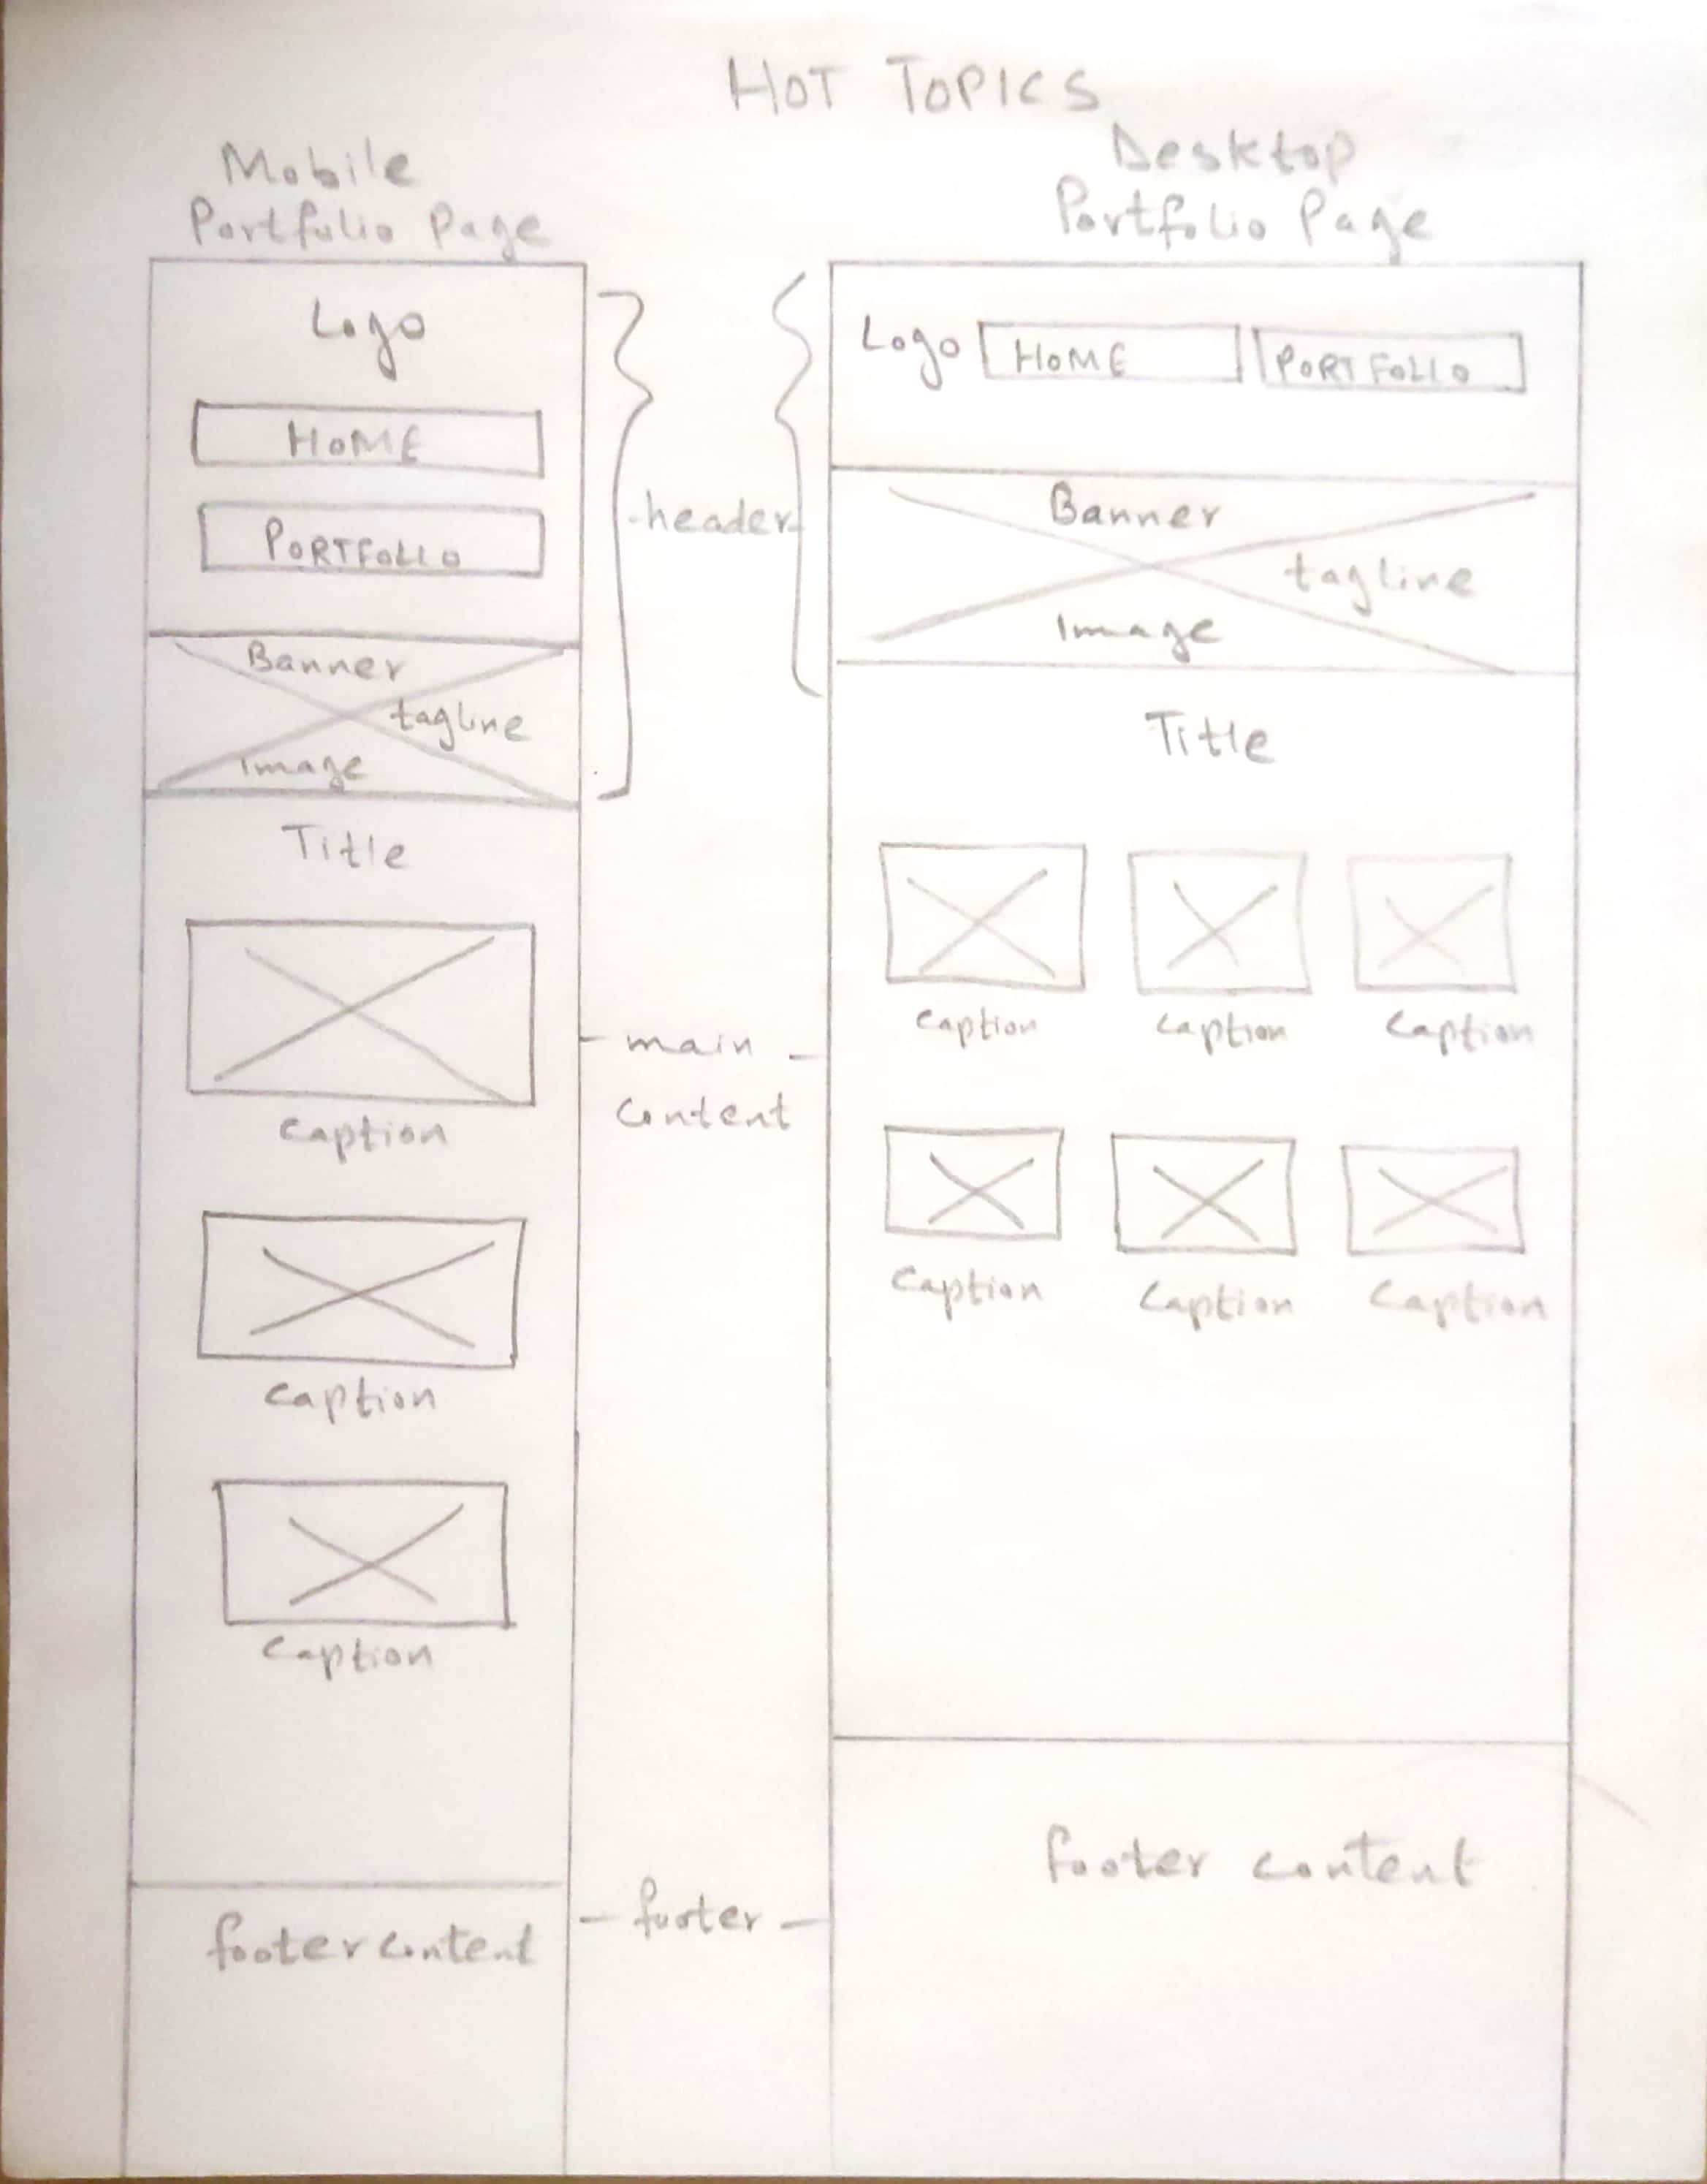 HOT TOPICS
Mobile
Portfolio Page
Logo
HOME
PORTFOLIO
Banner
tagline
Image
Title
Caption
Caption
Caption
footer content
header
main
Content
footer
Desktop
Portfolio Page
Logo HOME PORTFOLIO
Banner
tagline
Image
Title
Caption Caption Caption
Caption Caption Caption
footer content